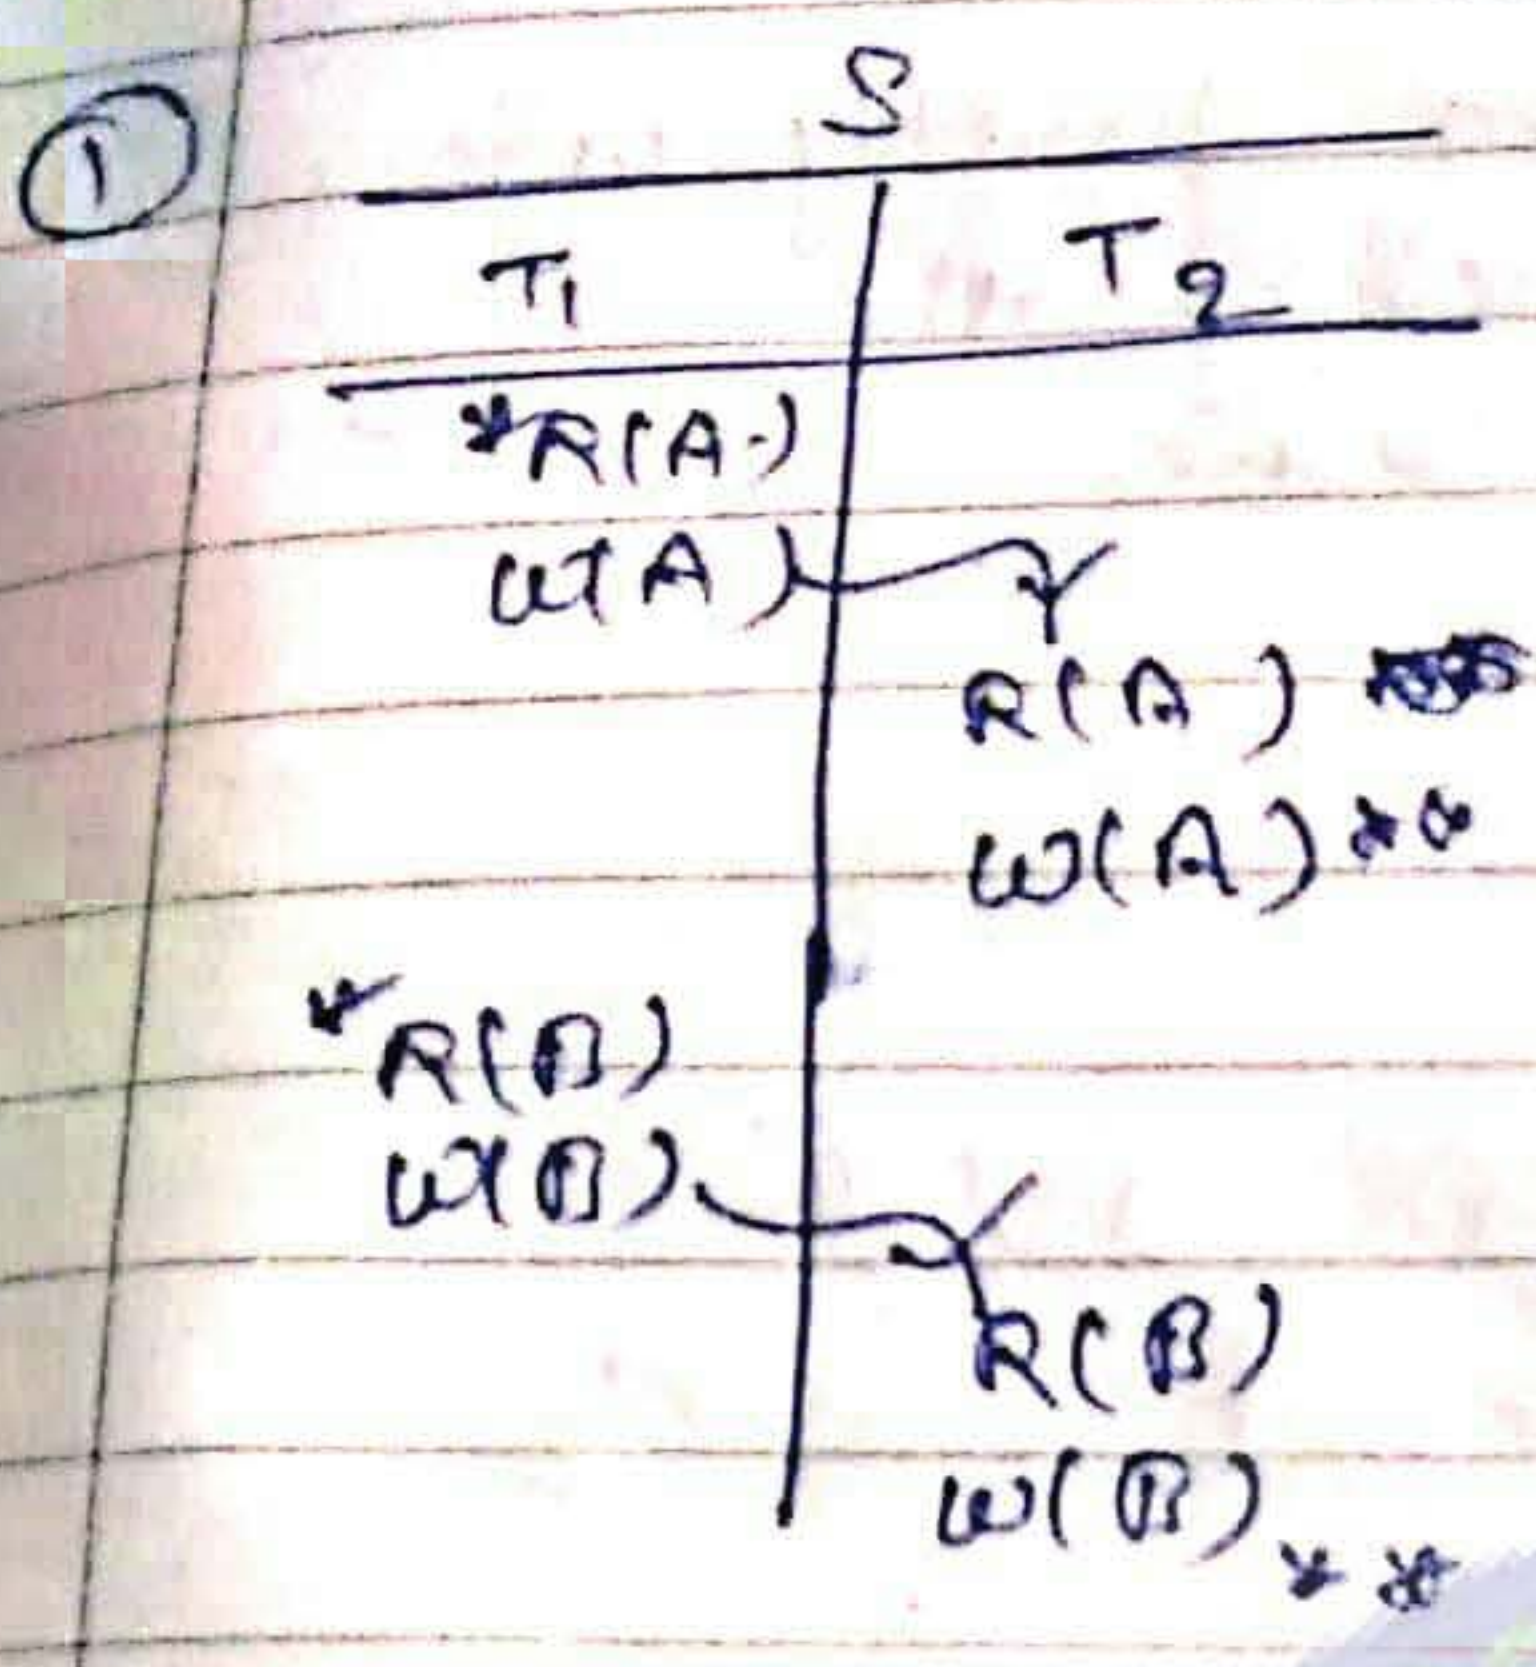 ①
S
T1 T2
*R(A)
W(A)
R(A)
W(A) **
*R(B)
W(B)
R(B)
W(B) **